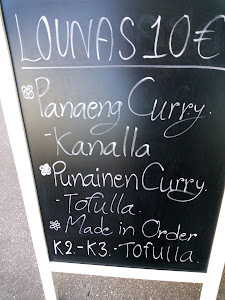 LOUNAS 10€
Panaeng Curry.
-Kanalla
Punainen Curry.
-Tofulla.
Made in Order
K2.-K3.-Tofulla.